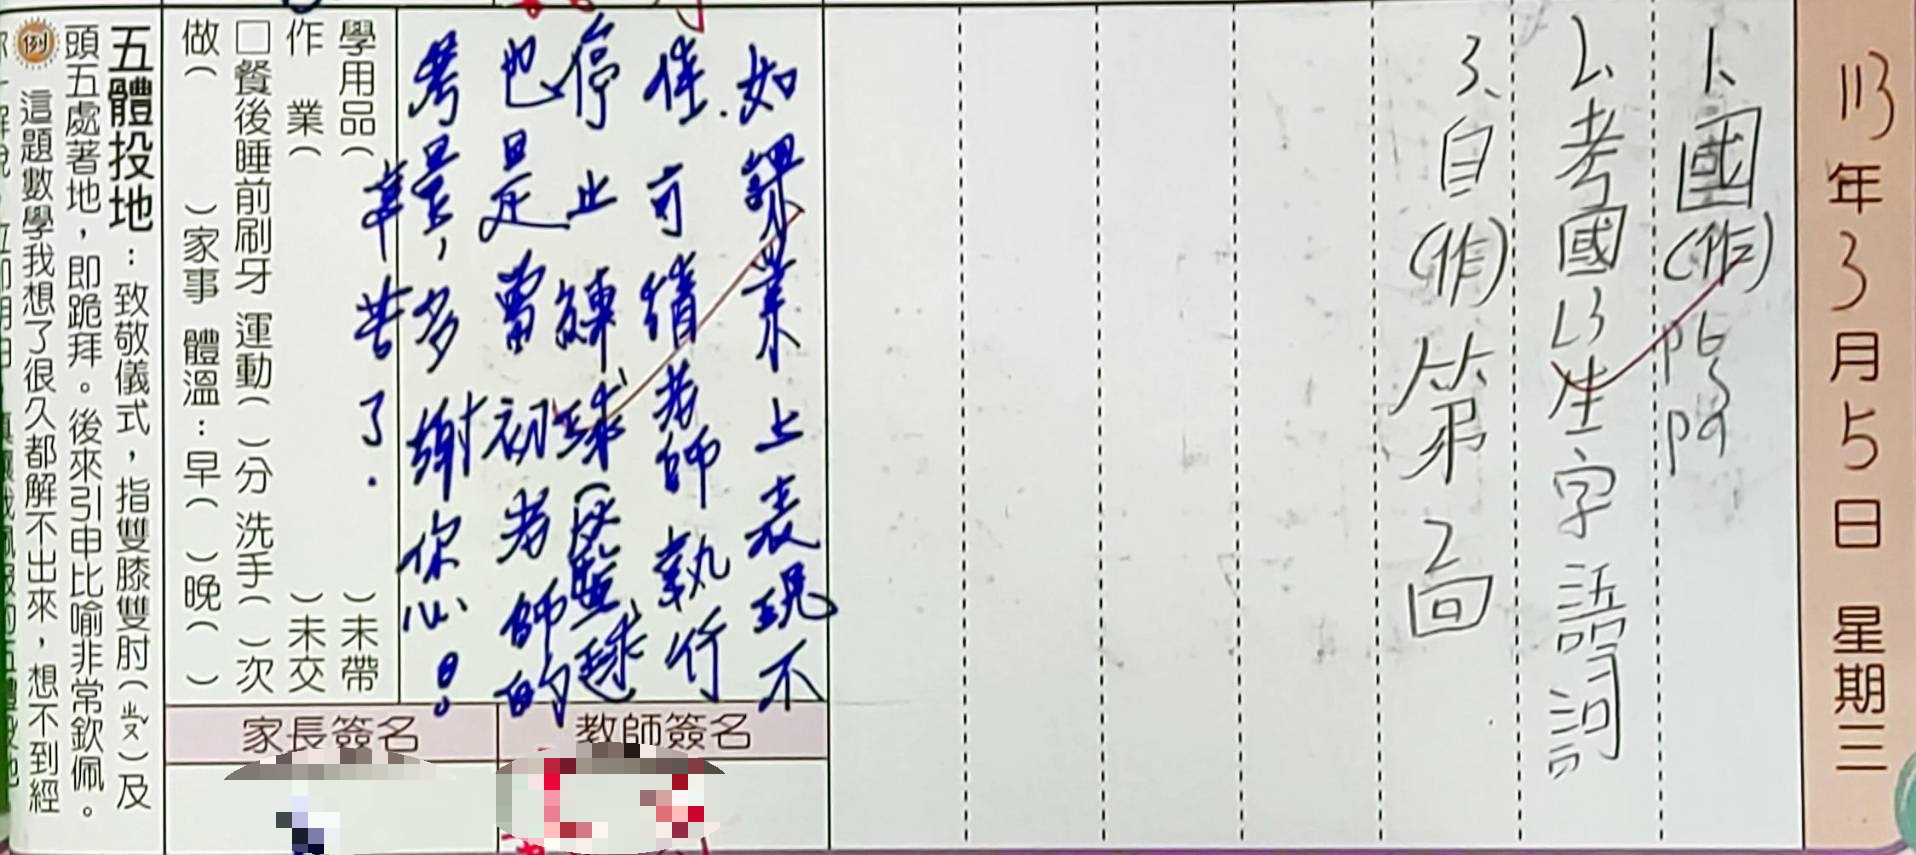 113年3月5日 星期三
1、國(作)P6、P9
2、考國L3生字語詞
3、自(作)第2回
如課業上表現不
佳.可請老師執行
停止練球(或壘球)
也是當初老師的
考量,多謝你心!
辛苦了.
學用品( )未帶
作 業( )未交
□餐後睡前刷牙 運動( )分 洗手( )次
做( )家事 體溫:早( )晚( )
教師簽名
家長簽名
五體投地:致敬儀式,指雙膝雙肘(ㄓㄡˇ)及
頭五處著地,即跪拜。後來引申比喻非常欽佩。
例 這題數學我想了很久都解不出來,想不到經